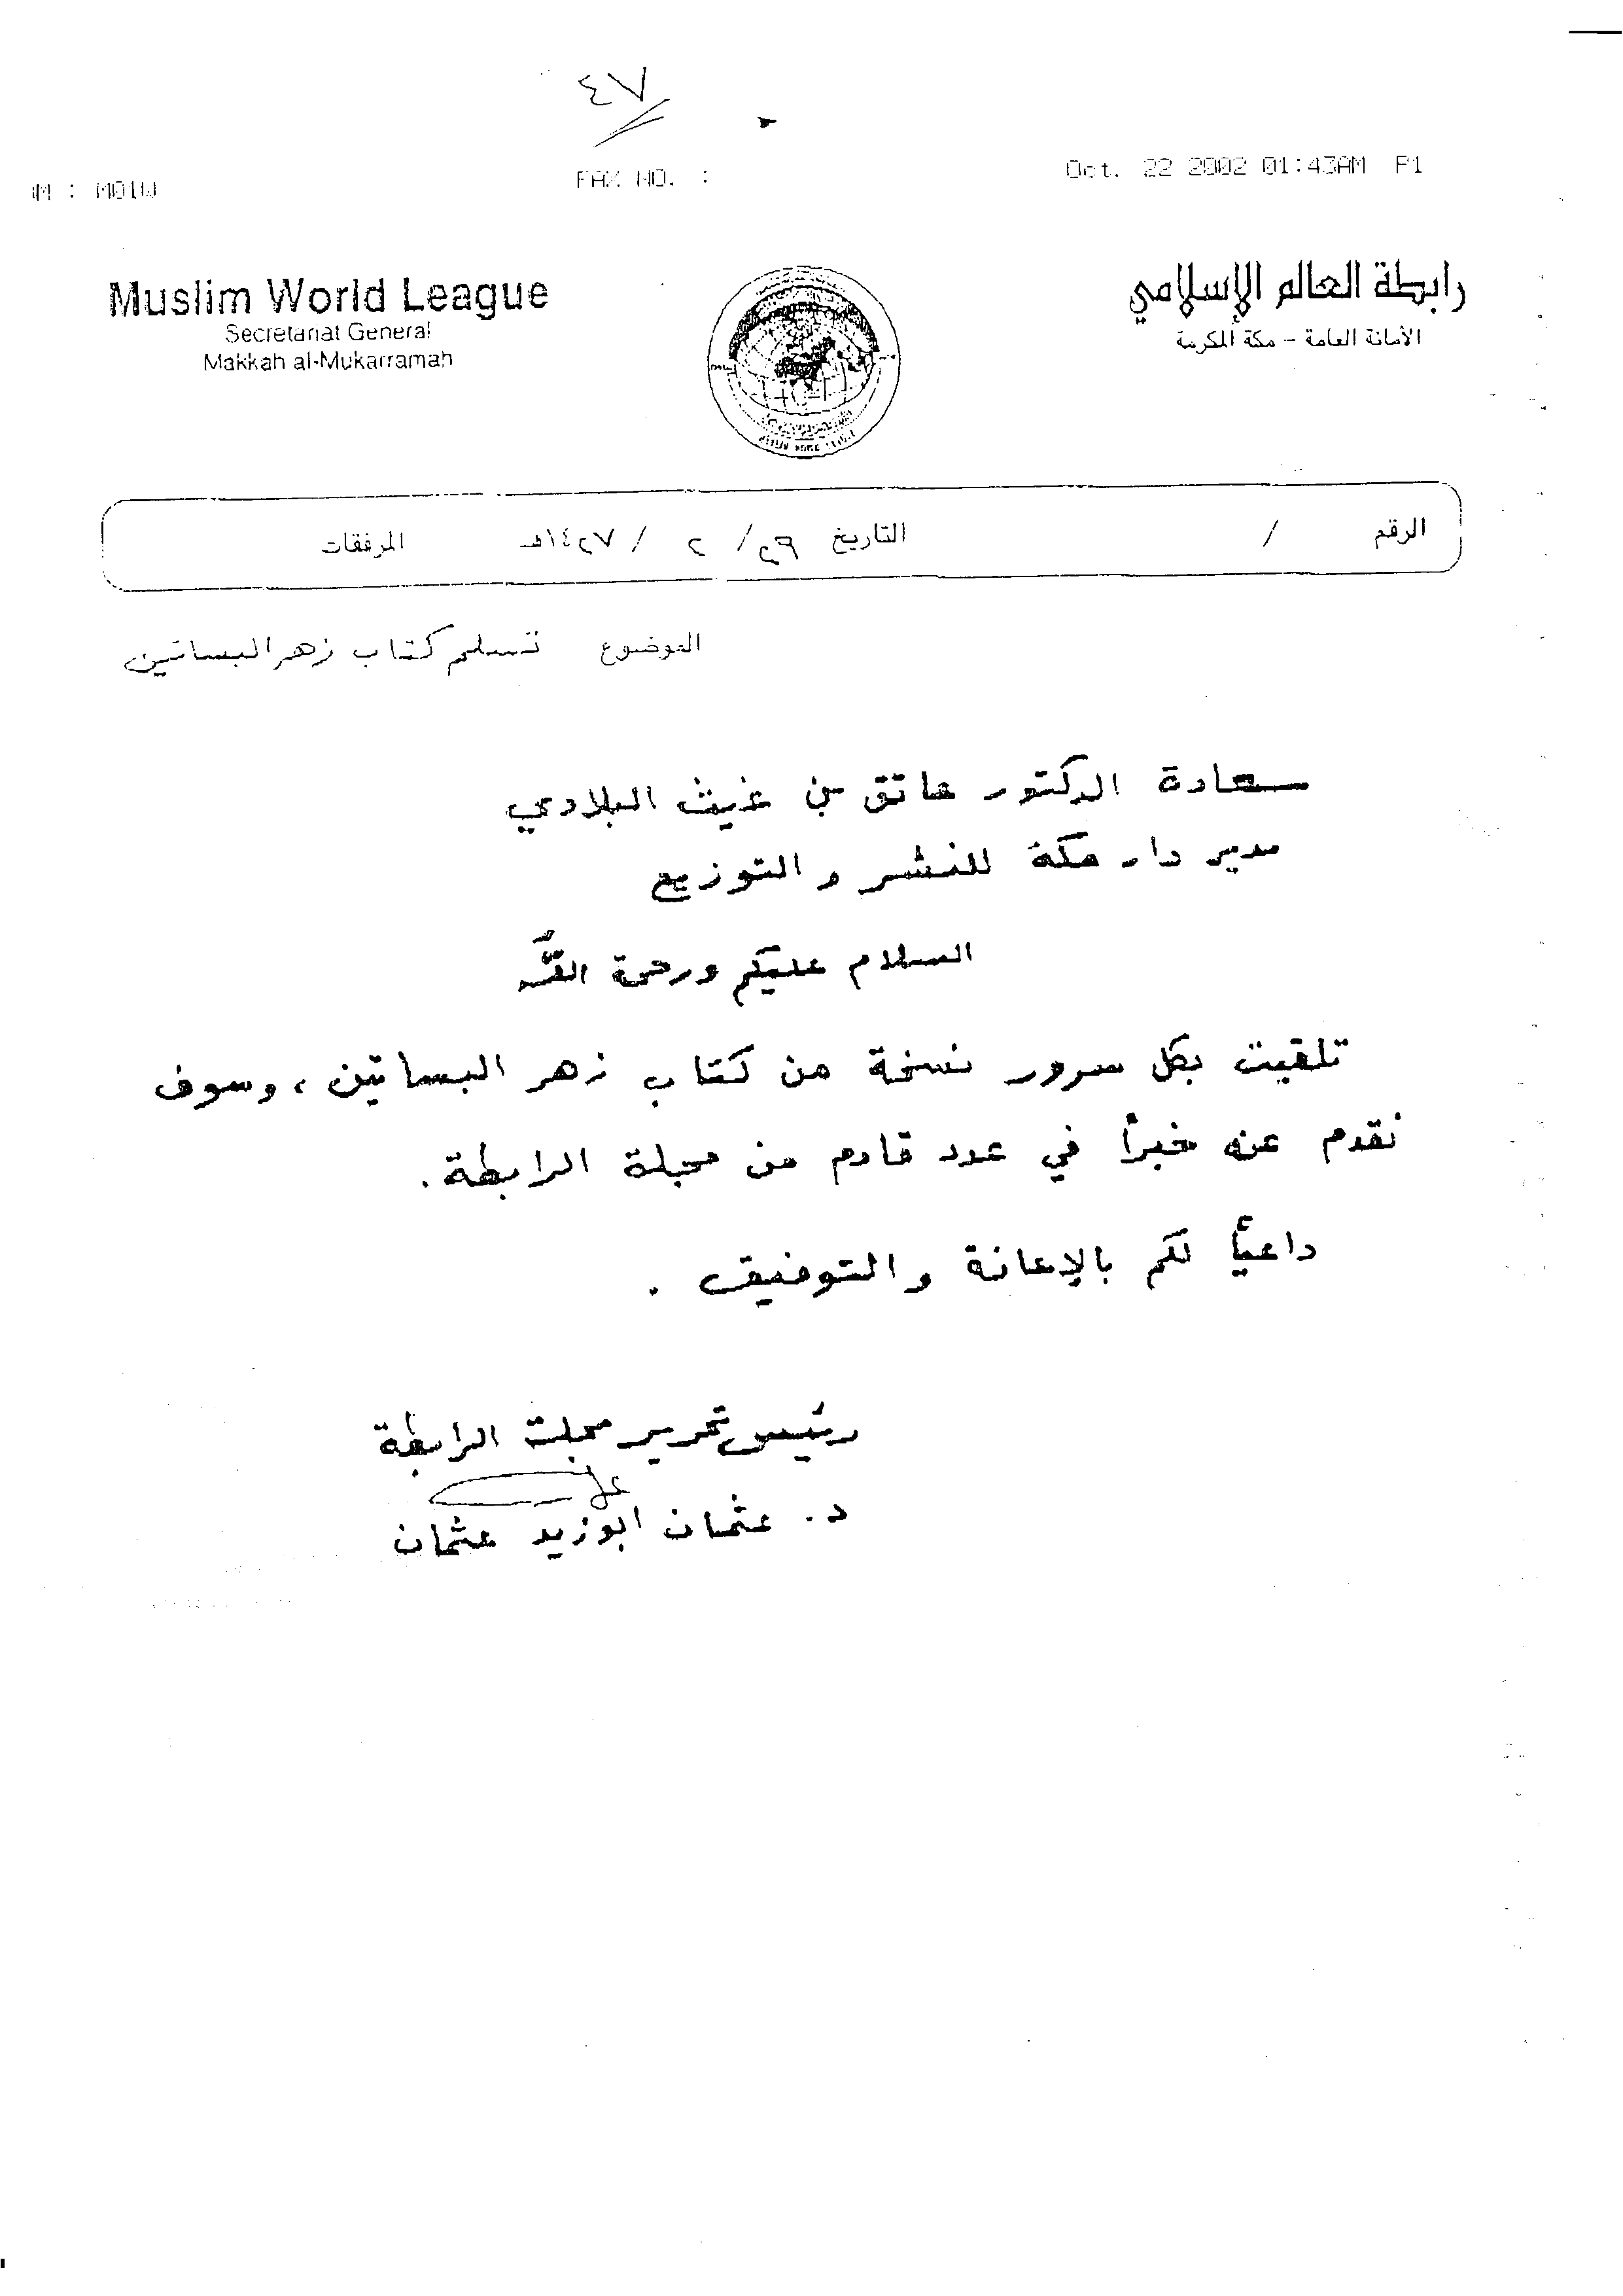 ٤٧
ОM : MOIW FAX NO. : Oct. 22 2002 01:43AM P1
Muslim World League
Secretariat General
Makkah al-Mukarramah
رابطة العالم الإسلامي
الأمانة العامة - مكة المكرمة
الرقم / التاريخ ٢٩/ ٢ / ١٤٢٧هـ المرفقات
الموضوع تسلم كتاب زهر البساتين
سعادة الدكتور عاتق بن غيث البلادي
مدير دار مكة للنشر والتوزيع
السلام عليكم ورحمة الله
تلقيت بكل سرور نسخة من كتاب زهر البساتين، وسوف
نقدم عنه خبراً في عدد قادم من مجلة الرابطة.
داعياً لكم بالإعانة والتوفيق.
رئيس تحرير مجلة الرابطة
د. عثمان ابوزيد عثمان